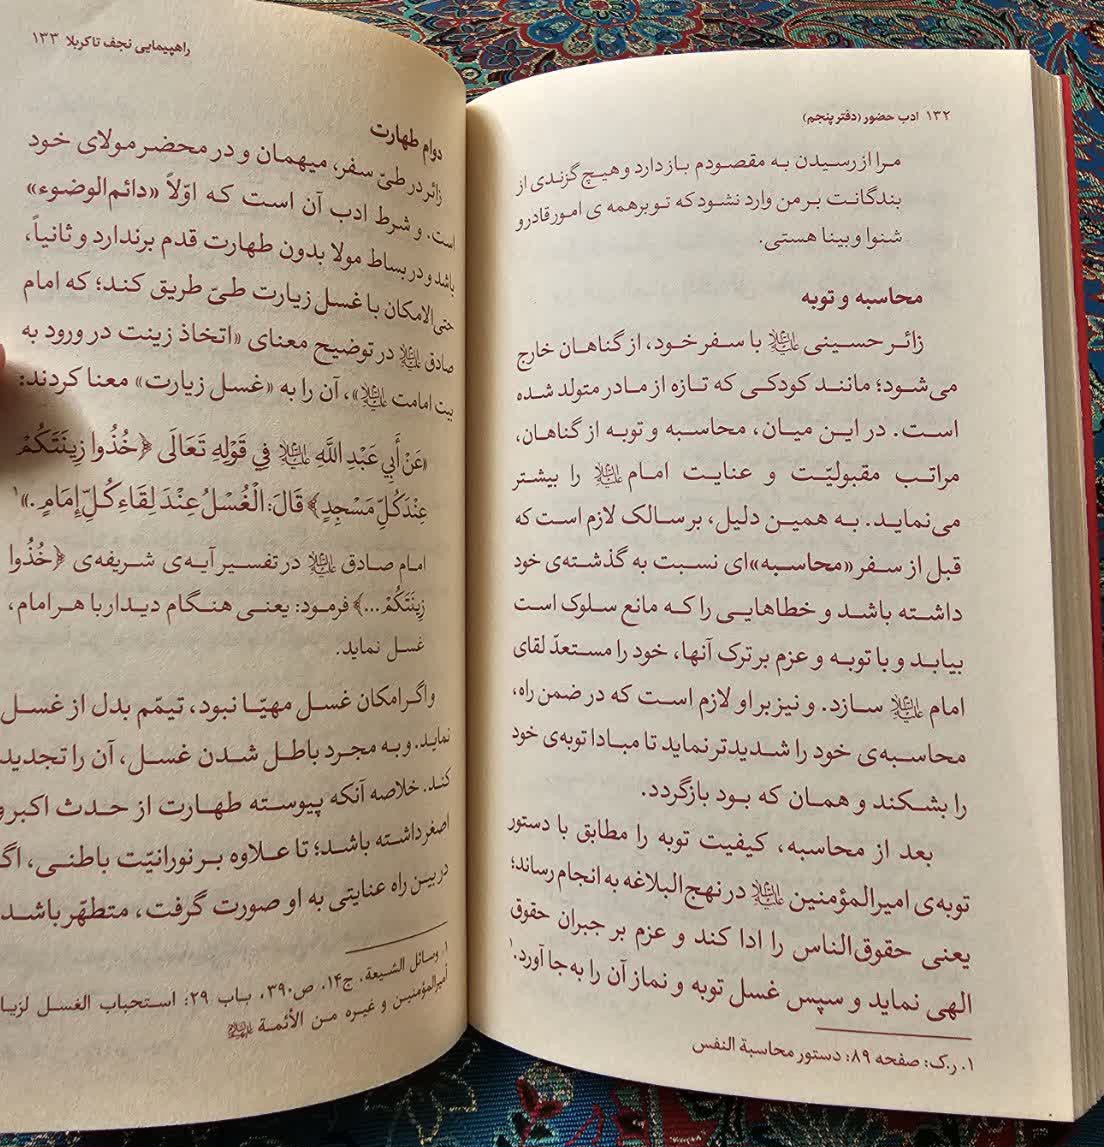 ۱۳۲ ادب حضور (دفتر پنجم)
مرا از رسیدن به مقصودم باز دارد و هیچ گزندی از
بندگانت بر من وارد نشود که تو بر همه ی امور قادر و
شنوا و بینا هستی.
محاسبه و توبه
زائر حسینی علیه‌السلام با سفر خود، از گناهان خارج
می‌شود؛ مانند کودکی که تازه از مادر متولد شده
است. در این میان، محاسبه و توبه از گناهان،
مراتب مقبولیّت و عنایت امام علیه‌السلام را بیشتر
می‌نماید. به همین دلیل، بر سالک لازم است که
قبل از سفر «محاسبه»ای نسبت به گذشته‌ی خود
داشته باشد و خطاهایی را که مانع سلوک است
بیابد و با توبه و عزم بر ترک آنها، خود را مستعدّ لقای
امام علیه‌السلام سازد. و نیز بر او لازم است که در ضمن راه،
محاسبه‌ی خود را شدیدتر نماید تا مبادا توبه‌ی خود
را بشکند و همان که بود بازگردد.
بعد از محاسبه، کیفیت توبه را مطابق با دستور
توبه‌ی امیرالمؤمنین علیه‌السلام در نهج‌البلاغه به انجام رساند؛
یعنی حقوق‌الناس را ادا کند و عزم بر جبران حقوق
الهی نماید و سپس غسل توبه و نماز آن را به‌جا آورد.۱
۱. ر.ک: صفحه ۸۹: دستور محاسبة النفس
راهپیمایی نجف تا کربلا ۱۳۳
دوام طهارت
زائر در طیّ سفر، میهمان و در محضر مولای خود
است. و شرط ادب آن است که اوّلاً «دائم‌الوضوء»
باشد و در بساط مولا بدون طهارت قدم برندارد و ثانیاً،
حتی‌الامکان با غسل زیارت طیّ طریق کند؛ که امام
صادق علیه‌السلام در توضیح معنای «اتخاذ زینت در ورود به
بیت امامت علیه‌السلام»، آن را به «غسل زیارت» معنا کردند:
«عَنْ أَبِي عَبْدِ اللَّهِ علیه‌السلام فِي قَوْلِهِ تَعَالَى ﴿خُذُوا زِينَتَكُمْ
عِنْدَ كُلِّ مَسْجِدٍ﴾ قَالَ: الْغُسْلُ عِنْدَ لِقَاءِ كُلِّ إِمَامٍ.»۱
امام صادق علیه‌السلام در تفسیر آیه‌ی شریفه‌ی ﴿خُذُوا
زِينَتَكُمْ...﴾ فرمود: یعنی هنگام دیدار با هر امام،
غسل نماید.
و اگر امکان غسل مهیّا نبود، تیمّم بدل از غسل
نماید. و به مجرد باطل شدن غسل، آن را تجدید
کند. خلاصه آنکه پیوسته طهارت از حدث اکبر و
اصغر داشته باشد؛ تا علاوه بر نورانیّت باطنی،
در بین راه عنایتی به او صورت گرفت، متطهّر باشد
۱. وسائل الشیعة، ج۱۴، ص۳۹۰، باب ۲۹: استحباب الغسل
أمیرالمؤمنین و غیره من الأئمة علیهم‌السلام